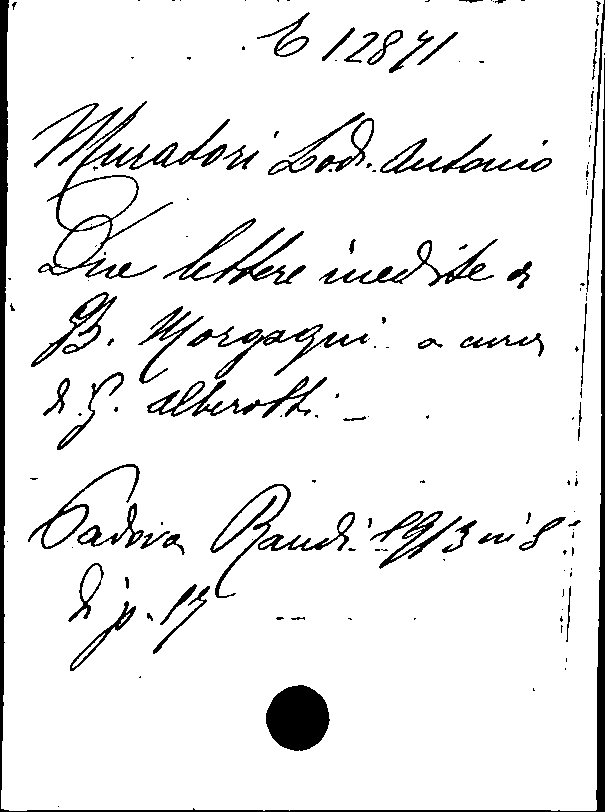 C 12871
Muratori Lod. Antonio
Due lettere inedite a
B. Morgagni a cura
di G. Alberotti.
Padova Randi 1913 in 8°
di p. 17